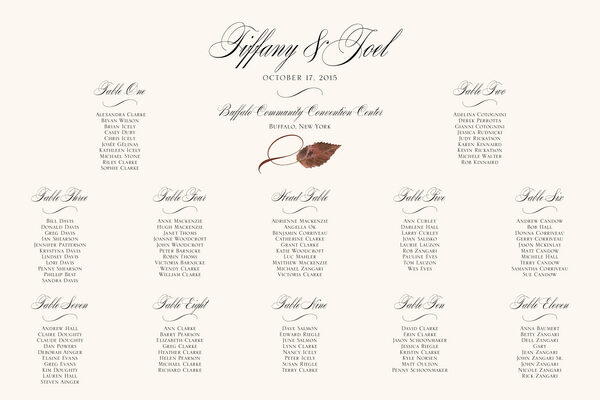 Tiffany & Joel
OCTOBER 17, 2015
Buffalo Community Convention Center
BUFFALO, NEW YORK
Table One
ALEXANDRA CLARKE
BEVAN WILSON
BRIAN ICELY
CASEY DUBY
CHRIS ICELY
JOSÉE GÉLINAS
KATHLEEN ICELY
MICHAEL STONE
RILEY CLARKE
SOPHIE CLARKE
Table Two
ADELINA COTOGNINI
DEREK PERROTTA
GIANNI COTOGNINI
JESSICA RUDNICKI
JUDY RICKATSON
KAREN KENNAIRD
KEVIN RICKATSON
MICHELE WALTER
ROB KENNAIRD
Table Three
BILL DAVIS
DONALD DAVIS
GREG DAVIS
IAN SHEARSON
JENNIFER PATTERSON
KRYSTYNA DAVIS
LINDSAY DAVIS
LORI DAVIS
PENNY SHEARSON
PHILLIP BEST
SANDRA DAVIS
Table Four
ANNE MACKENZIE
HUGH MACKENZIE
JANET THOMS
JOANNE WOODCROFT
JOHN WOODCROFT
PETER BARNICKE
ROBIN THOMS
VICTORIA BARNICKE
WENDY CLARKE
WILLIAM CLARKE
Head Table
ADRIENNE MACKENZIE
ANGELLA OK
BENJAMIN CORRIVEAU
CATHERINE CLARKE
GRANT CLARKE
KATIE WOODCROFT
LUC MAHLER
MATTHEW MACKENZIE
MICHAEL ZANGARI
VICTORIA CLARKE
Table Five
ANN CURLEY
DARLENE HALL
LARRY CURLEY
JOAN SALISKO
LAURIE LAUZON
PAUL SALISKO
PAULINE EVES
TOM LAUZON
WES EVES
Table Six
ANDREW CANDOW
BOB HALL
DONNA CORRIVEAU
GERRY CORRIVEAU
JASON MCKINLAY
MATT CANDOW
MICHELE HALL
TERRY CANDOW
SAMANTHA CORRIVEAU
SUE CANDOW
Table Seven
ANDREW HALL
CLAIRE DOUGHTY
CLAUDE DOUGHTY
DAN POWERS
DEBORAH AINGER
ELAINE EVANS
GREG EVANS
KIM DOUGHTY
LAUREN HALL
STEVEN AINGER
Table Eight
ANN CLARKE
BARRY PEARSON
ELIZABETH CLARKE
GREG CLARKE
HEATHER CLARKE
HELEN PEARSON
MICHAEL CLARKE
RICHARD CLARKE
Table Nine
DAVE SALMON
EDWARD RIEGLE
JUNE SALMON
LYNN CLARKE
NANCY ICELY
PETER ICELY
SUSAN RIEGLE
TERRY CLARKE
Table Ten
DAVID CLARKE
ERIN CLARKE
JASON SCHOONMAKER
JESSICA RIEGLE
KRISTIN CLARKE
KYLE NORSEN
MATT OULTON
PENNY SCHOONMAKER
Table Eleven
ANNA BAUMERT
BETTY ZANGARI
DELL ZANGARI
GARY
JEAN ZANGARI
JOHN ZANGARI SR.
JOHN ZANGARI
NICOLE ZANGARI
RICK ZANGARI